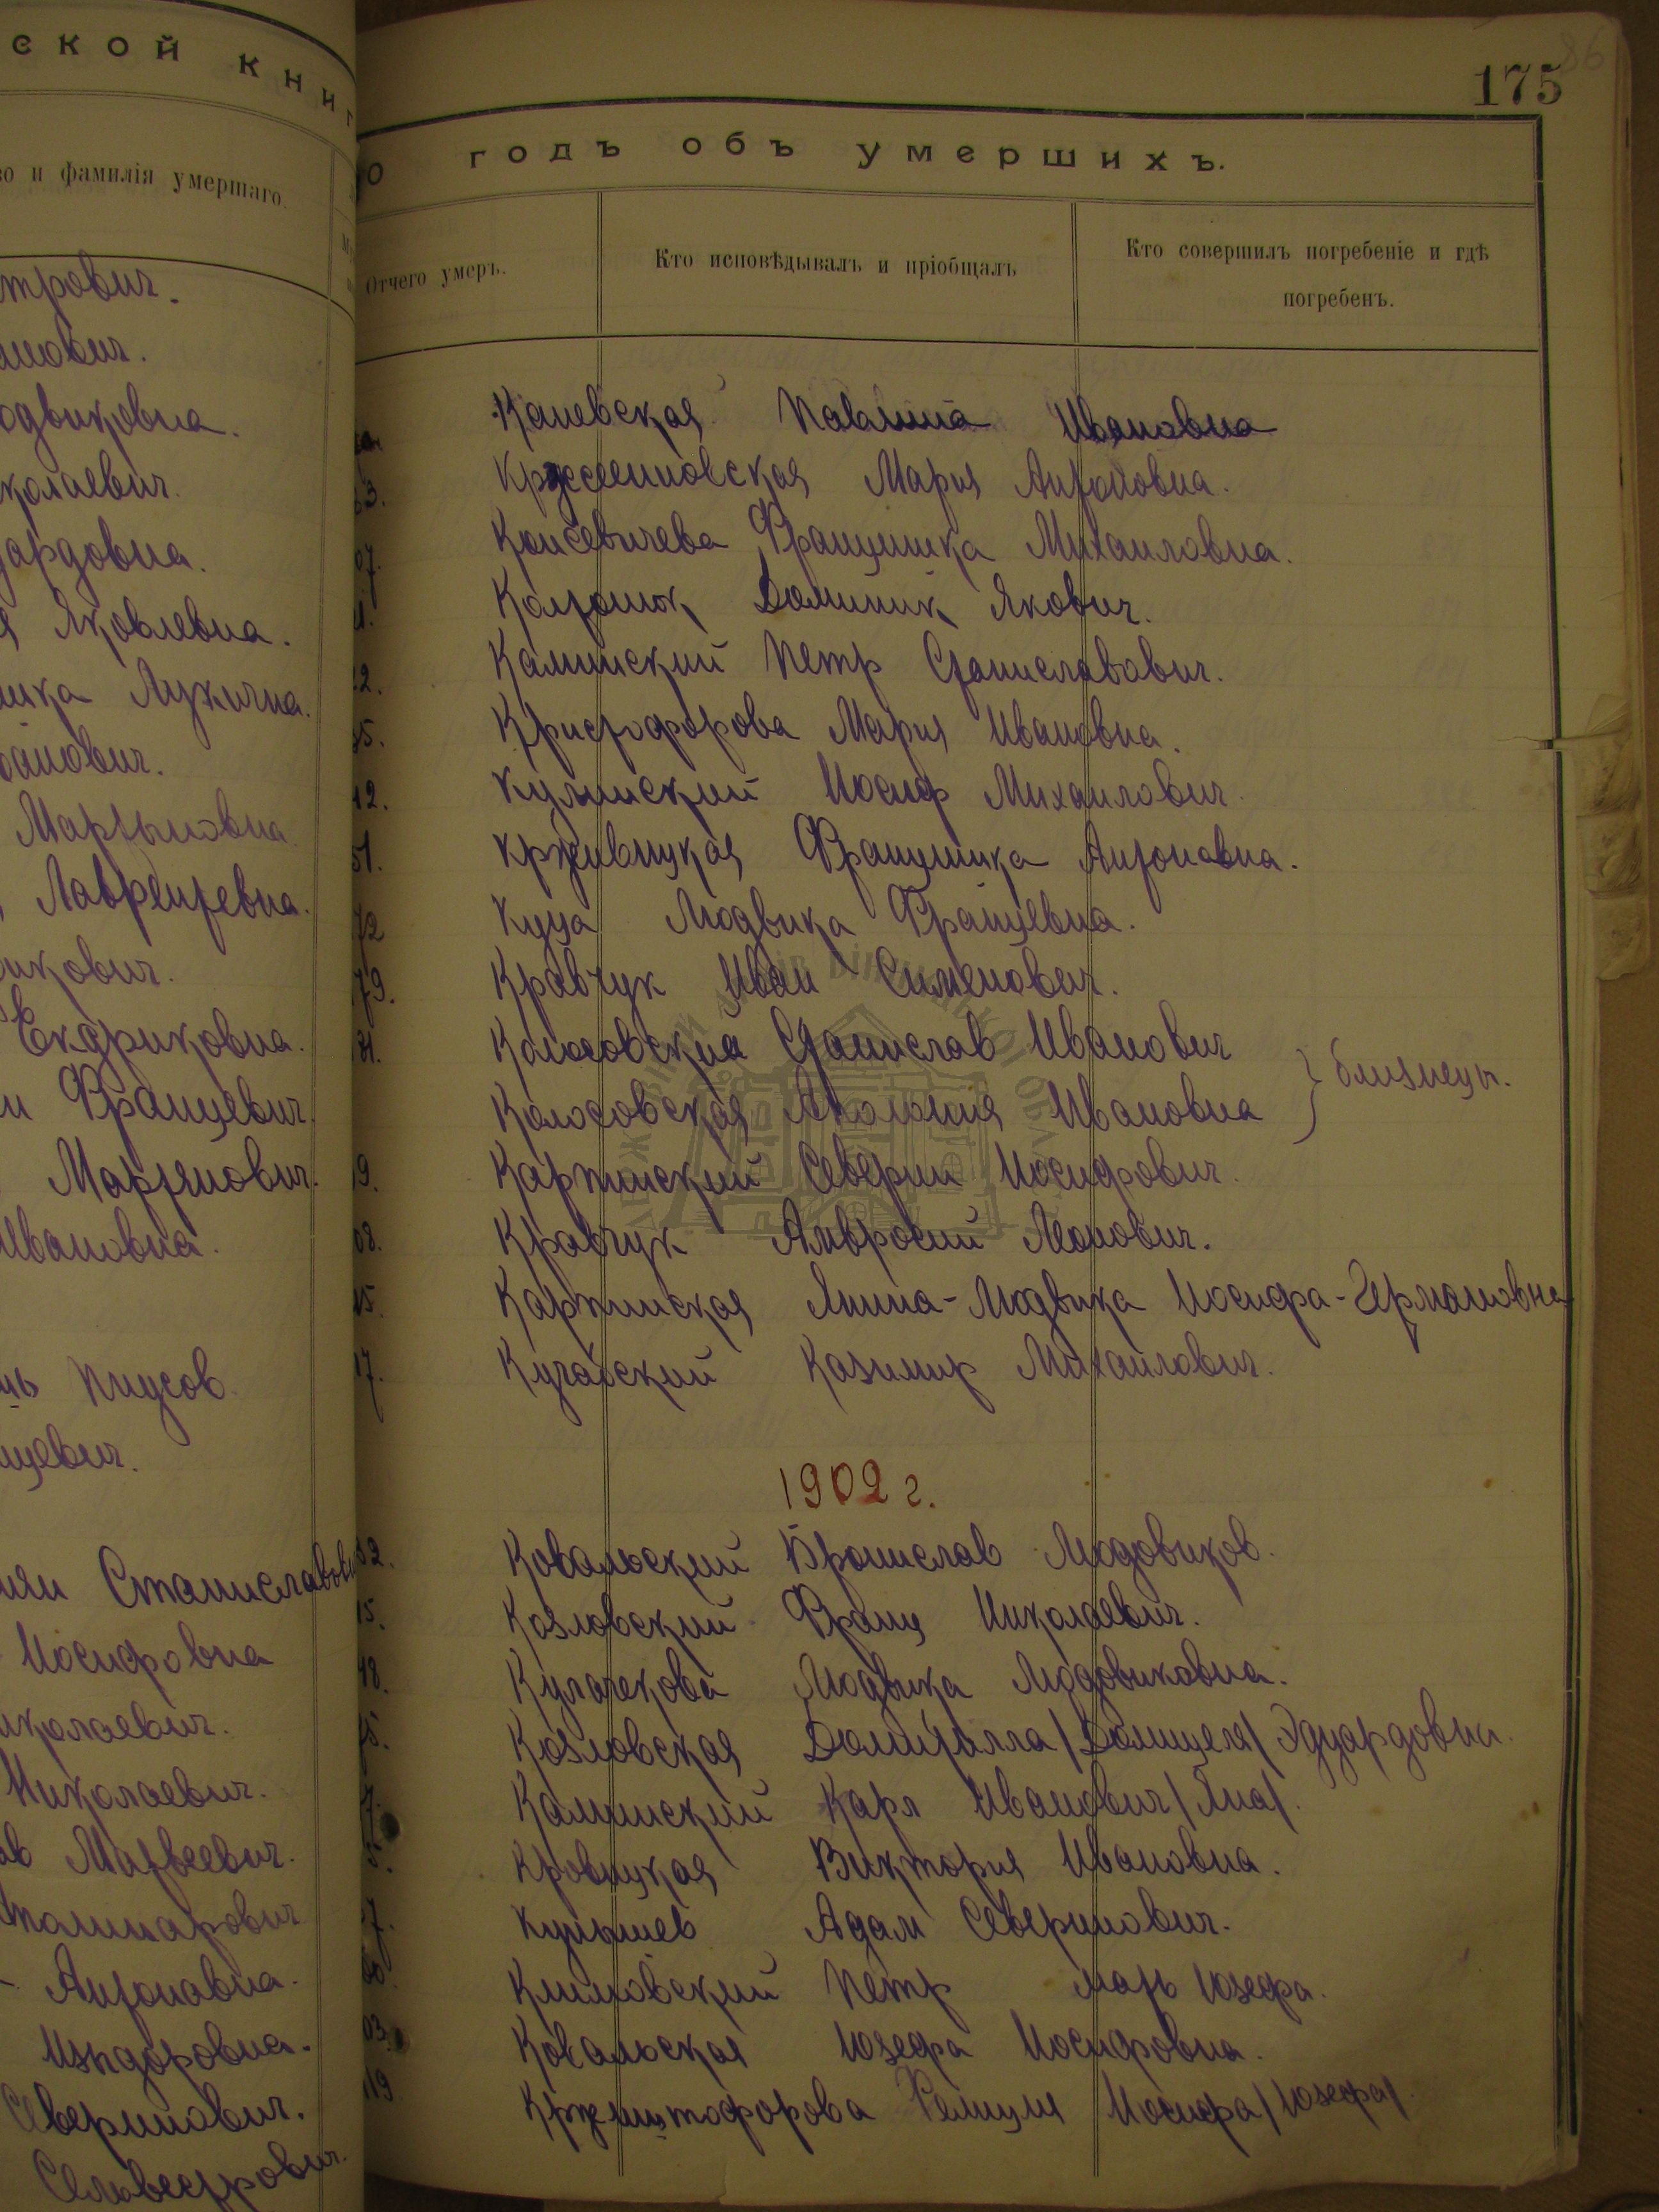 ской книг
во и фамилія умершаго.
трович.
одвиковна.
колаевич.
ардовна.
Яковлевна.
Лукична.
Мартыновна
Лаврентевна.
Францевич.
Мартынович.
Ивановна.
Пиусов.
Станиславов
Иосифовна
иколаевич.
Николаевич.
Матвеевич.
Антоновна.
Изидоровна.
Северинович.
Сильвестрович.
86
175
0 годъ объ умершихъ.
Отчего умеръ.
Кто исповѣдывалъ и пріобщалъ
Кто совершилъ погребеніе и гдѣ
погребенъ.
Каневская Павлина Ивановна
63. Кржеминовская Мария Антоновна.
07. Консевичева Францишка Михаиловна.
Доминик Якович.
22. Каминский Петр Станиславович.
35. Кристофорова Мария Ивановна.
42. Кулинский Иосиф Михаилович.
51. Крживицкая Францишка Антоновна.
72 Куца Людвика Францевна.
79. Кравчук Иван Сименович.
81. Колосовский Станислав Иванович
Колосовская Аполония Ивановна } близнецы.
9. Карпинский Северин Иосифович.
08. Кравчук Амвросий Леонович.
15. Карпинская Янина-Людвика Иосифа-Германовна
17. Кучайский Казимир Михаилович.
1902 г.
32. Ковальский Бронислав Людовиков.
15. Козловский Франц Николаевич.
48. Людвика Людовиковна.
75. Козловская Домитилла /Домицеля/ Эдуардовна.
7. Каминский Карл Иванович /Яна/.
5. Кровицкая Виктория Ивановна.
7. Адам Северинович.
60. Климовский Петр мать Юзефа.
03. Ковальская Юзефа Иосифовна.
119 Кржиштофорова Фелиция Иосифа /Юзефа/.